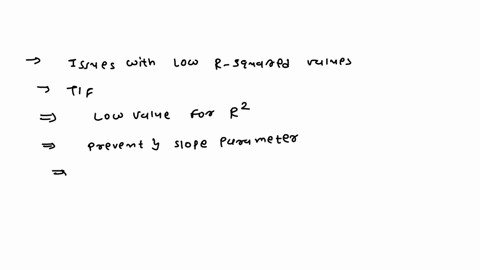 → Issues with low R-squared values
→ T/F
⇒ Low value for R²
⇒ prevent y slope parameter
⇒